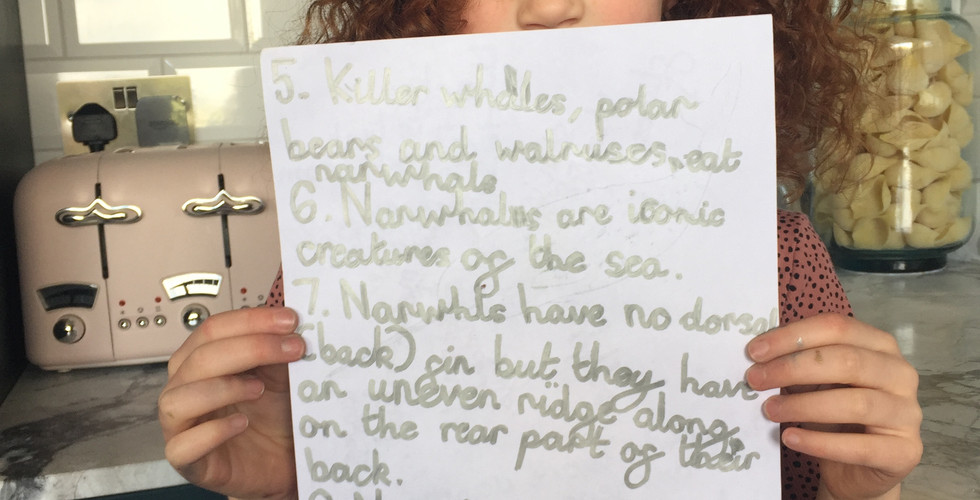 5. Killer whalles, polar
bears and walruses eat
narwhals
6. Narwhalus are iconic
creatures of the sea.
7. Narwhls have no dorsal
(back) fin but they have
an uneven ridge along
on the rear part of their
back.